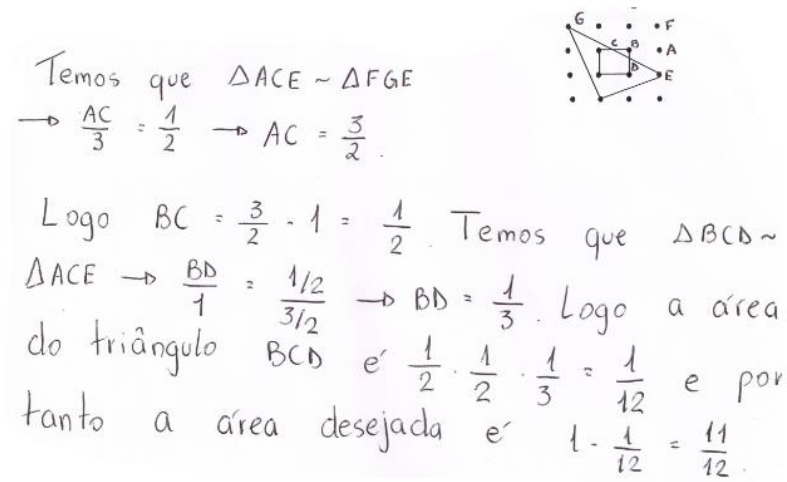 G F
C B A
D E
Temos que ΔACE ~ ΔFGE
→ AC/3 = 1/2 → AC = 3/2.
Logo BC = 3/2 - 1 = 1/2. Temos que ΔBCD ~
ΔACE → BD/1 = (1/2)/(3/2) → BD = 1/3. Logo a área
do triângulo BCD é 1/2 · 1/2 · 1/3 = 1/12 e por
tanto a área desejada é 1 - 1/12 = 11/12.